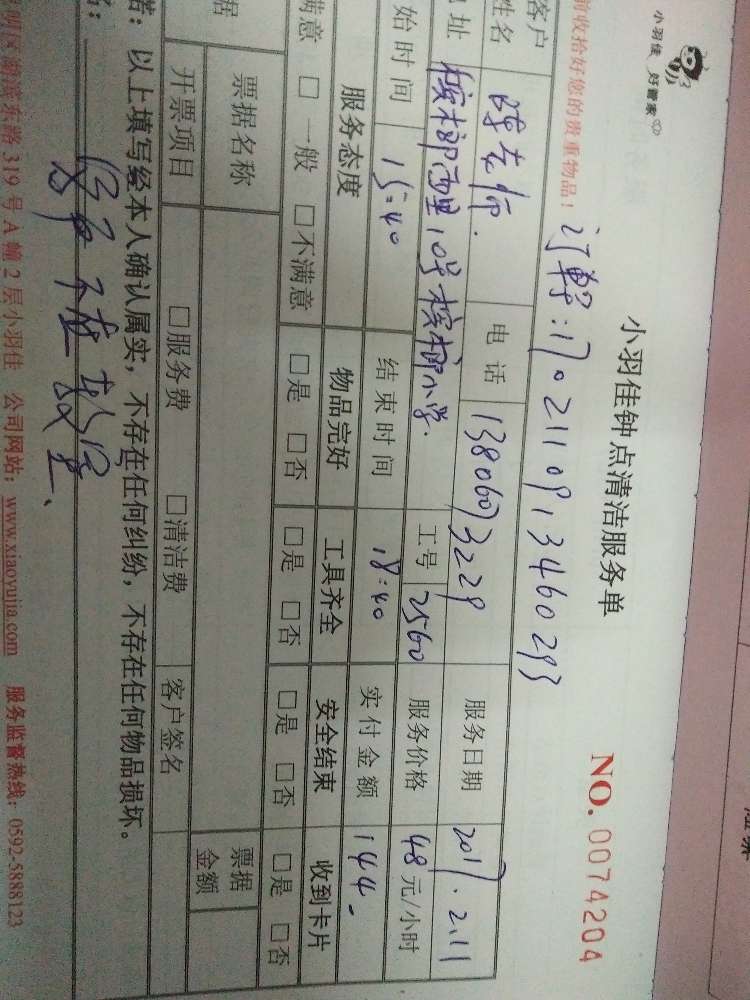 小羽佳 好管家
小羽佳钟点清洁服务单
NO. 0074204
前收拾好您的贵重物品！
订单：1702110913460293
客户
姓名 陈老师 电话 13806073229 服务日期 2017.2.11
地址 槟榔西里10号槟榔小学. 工号 2560 服务价格 48元/小时
始时间 15:40 结束时间 18:40 实付金额 144.
服务态度 物品完好 工具齐全 安全结束 收到卡片
满意 □一般 □不满意 □是 □否 □是 □否 □是 □否 □是 □否
据 票据名称 票据金额
开票项目 □服务费 □清洁费 客户签名
诺：以上填写经本人确认属实，不存在任何纠纷，不存在任何物品损坏。
名：
不在
明区湖滨东路319号A幢2层小羽佳 公司网站：www.xiaoyujia.com 服务监督热线：0592-5888123